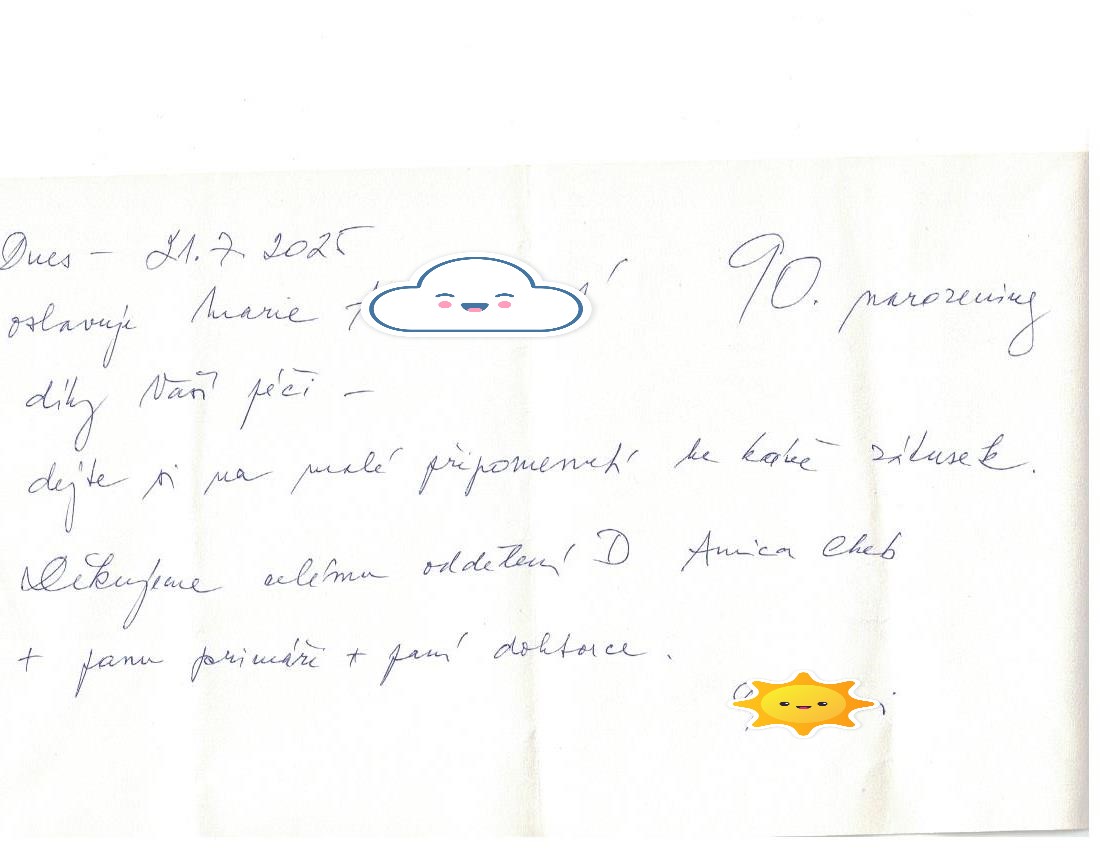 Dnes - 21.7.2025
oslavuje Marie 90. narozeniny
díky Vaší péči -
dejte si na malé připomenutí ke kávě zákusek.
Děkujeme celému oddělení D Amica Cheb
+ panu primáři + paní doktorce.